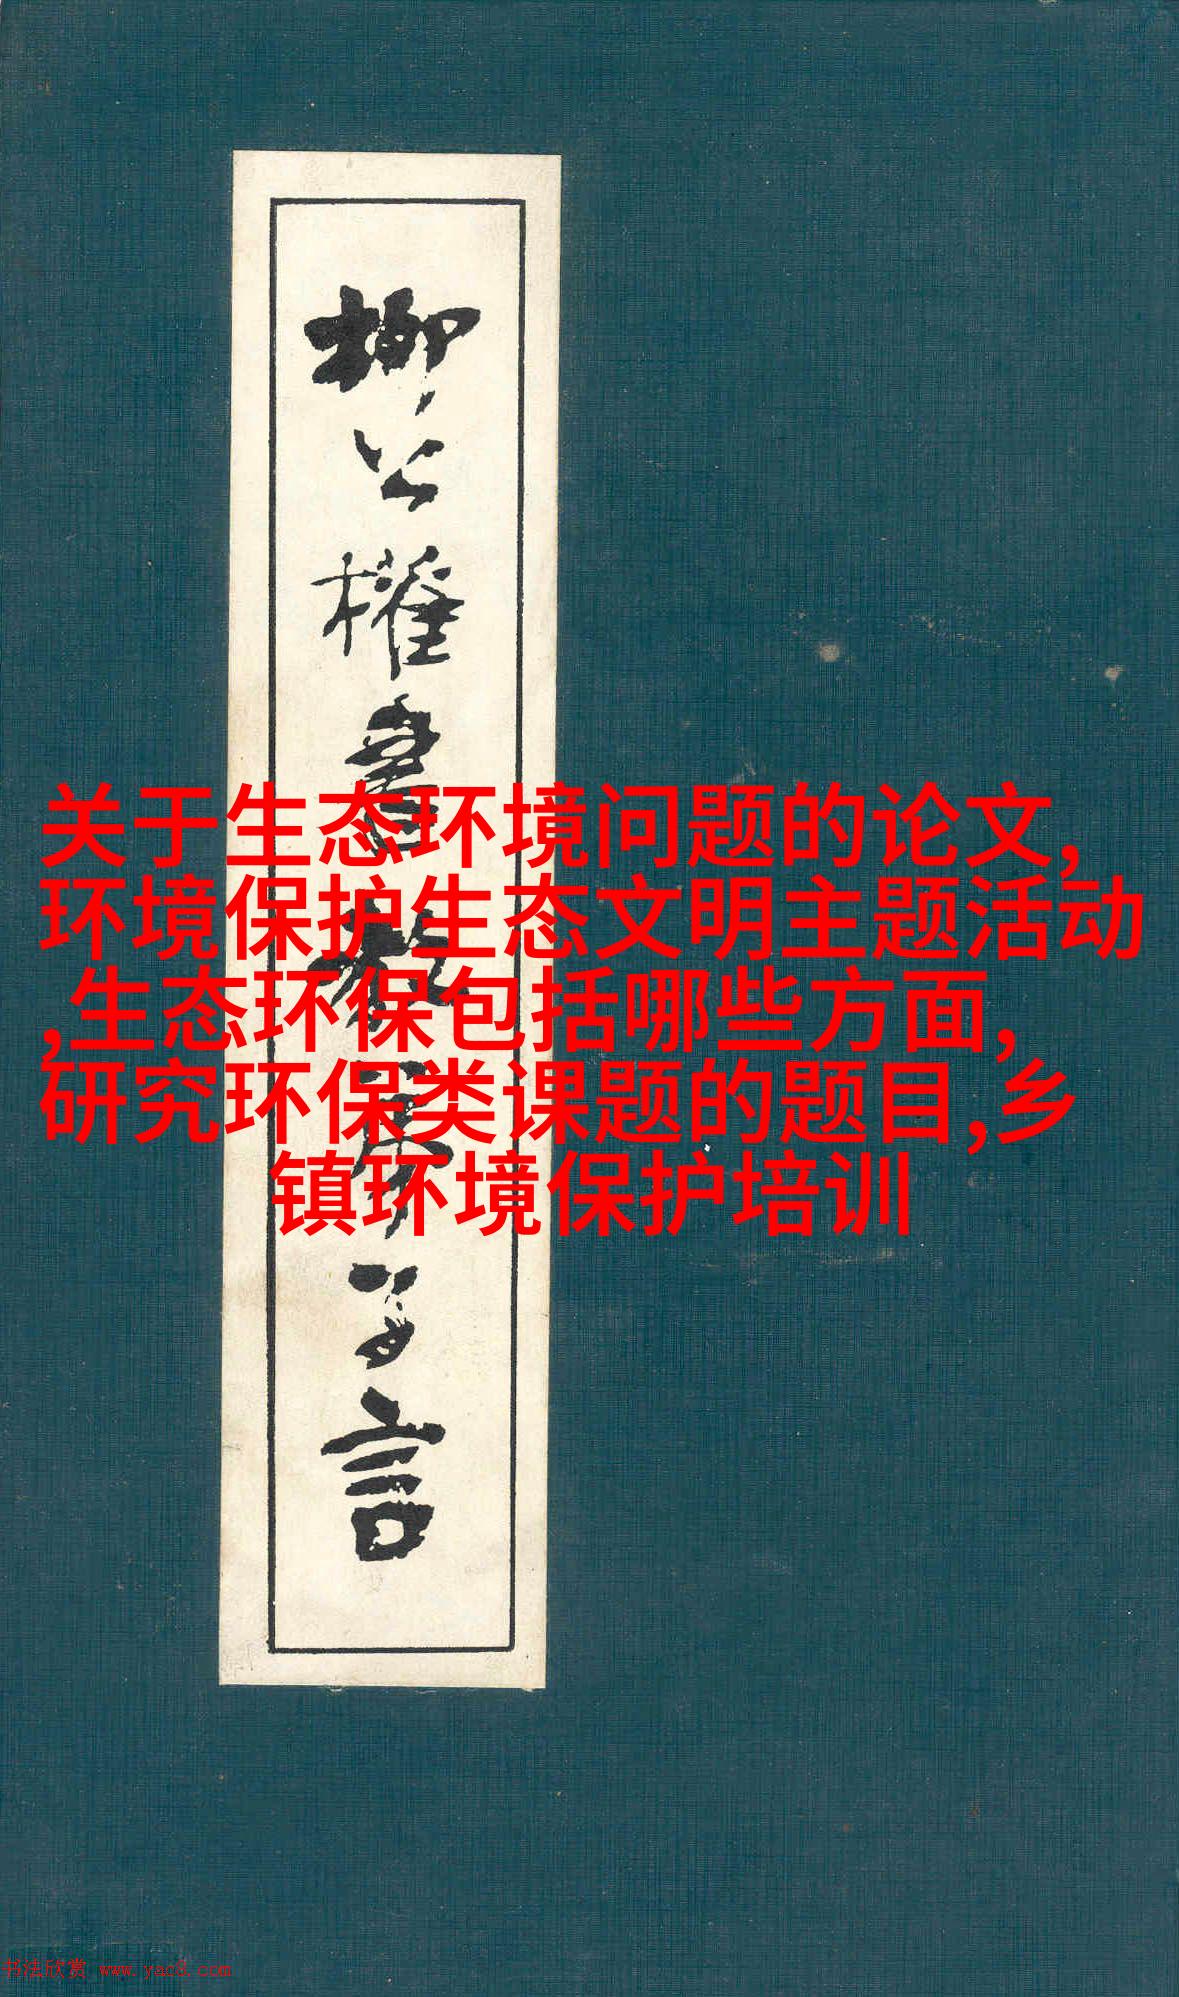 柳公權書教弟子言
关于生态环境问题的论文,
环境保护生态文明主题活动
,生态环保包括哪些方面,
研究环保类课题的题目,乡
镇环境保护培训
书法欣赏 www.yac8.com